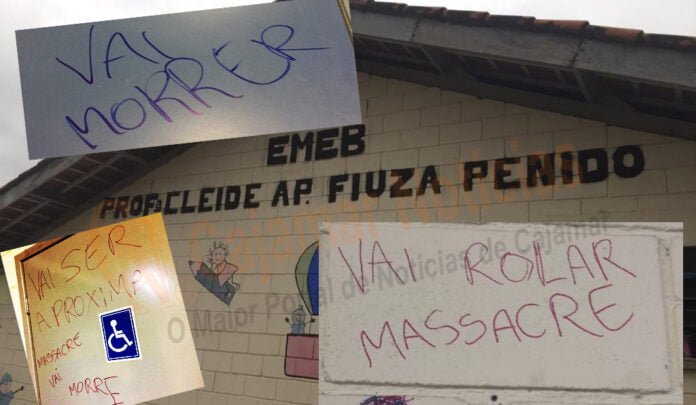 VAI
MORRER
EMEB
PROFª CLEIDE AP. FIUZA PENIDO
Cajamar Notícias
O Maior Portal de Notícias de Cajamar
VAI SER
A PROXIMA
MASSACRE
VAI
MORRE
VAI ROLAR
MASSACRE